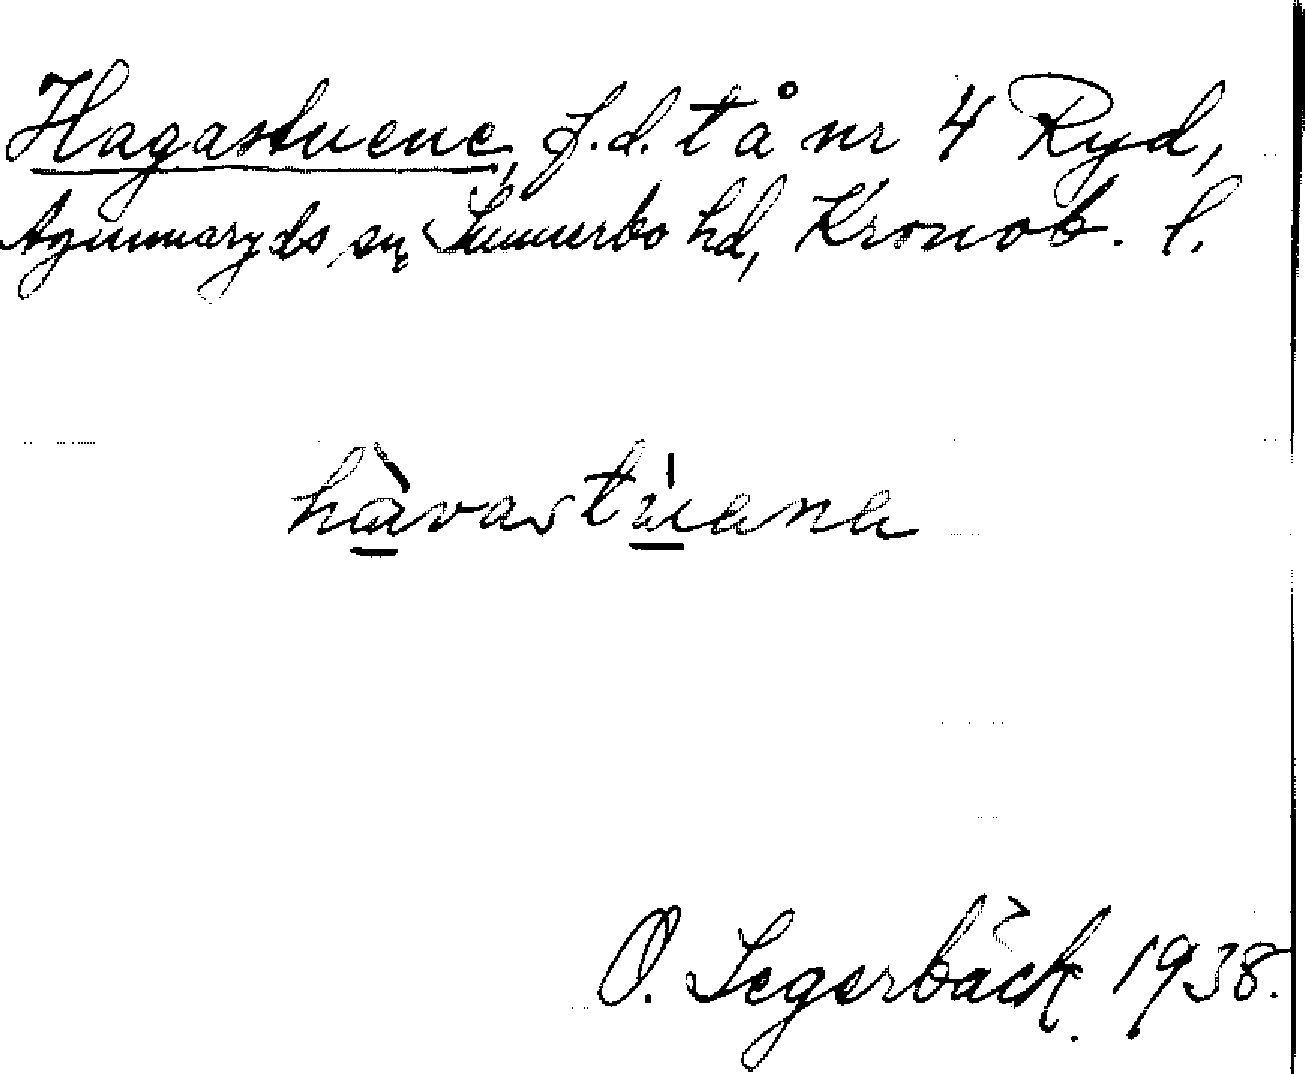 Hagastuene, f.d. t å nr 4 Ryd,
Agunnaryds sn, Sunnerbo hd, Kronob. l.
hàvastùena
O. Segerbäck. 1938.